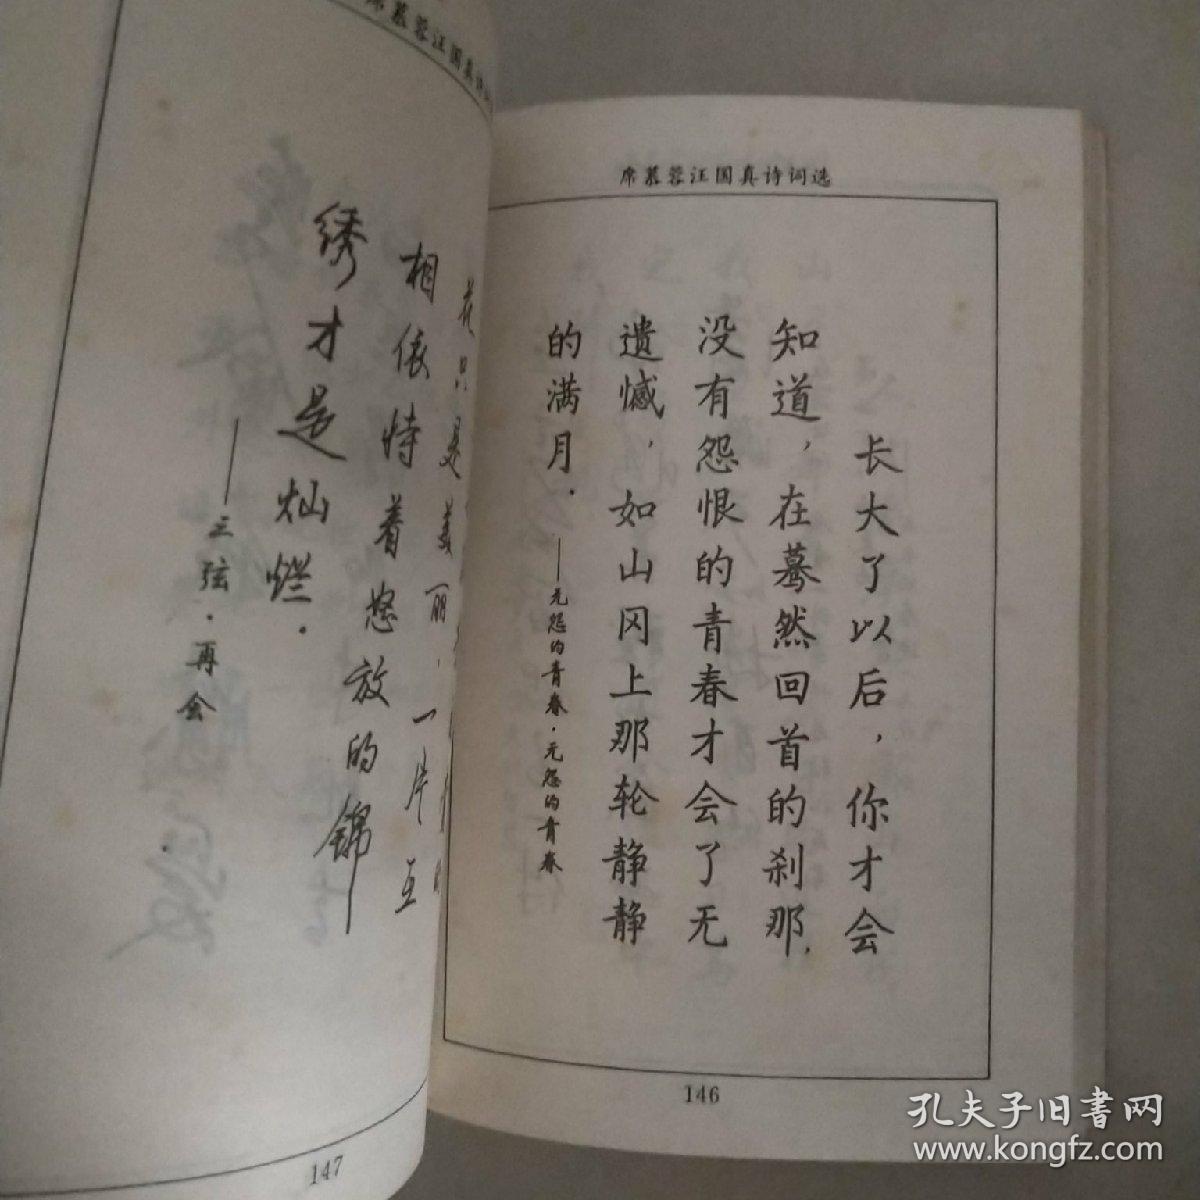 席慕蓉汪国真诗词选
长大了以后，你才会
知道，在蓦然回首的刹那，
没有怨恨的青春才会了无
遗憾，如山冈上那轮静静
的满月．
——无怨的青春·无怨的青春
146
席慕蓉汪国真诗
花只是美丽，一片互
相依恃着怒放的锦
绣才是灿烂．
——三弦·再会
147
孔夫子旧书网
www.kongfz.com